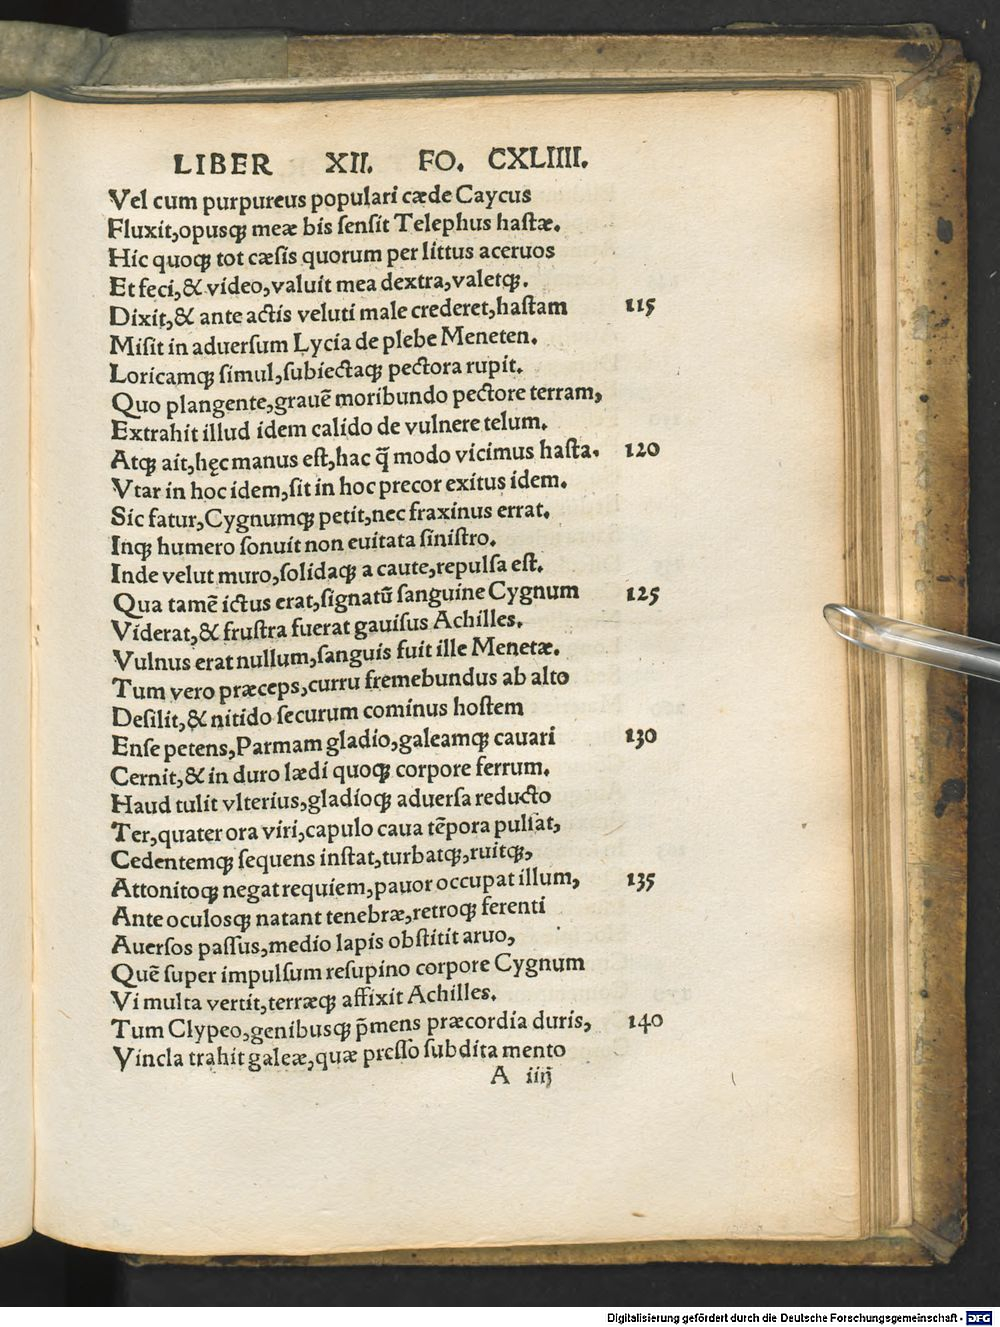 LIBER XII. FO. CXLIIII.
Vel cum purpureus populari cæde Caycus
Fluxit,opusqꝫ meæ bis ſenſit Telephus haſtæ.
Hic quoqꝫ tot cæſis quorum per littus aceruos
Et feci,& video,valuit mea dextra,valetqꝫ.
Dixit,& ante actis veluti male crederet,haſtam 115
Miſit in aduerſum Lycia de plebe Meneten.
Loricamqꝫ ſimul,ſubiectaqꝫ pectora rupit.
Quo plangente,grauē moribundo pectore terram,
Extrahit illud idem calido de vulnere telum.
Atqꝫ ait,hęc manus eſt,hac q̄ modo vicimus haſta. 120
Vtar in hoc idem,ſit in hoc precor exitus idem.
Sic fatur,Cygnumqꝫ petit,nec fraxinus errat.
Inqꝫ humero ſonuit non euitata ſiniſtro.
Inde velut muro,ſolidaqꝫ a caute,repulſa eſt.
Qua tamē ictus erat,ſignatū ſanguine Cygnum 125
Viderat,& fruſtra fuerat gauiſus Achilles.
Vulnus erat nullum,ſanguis fuit ille Menetæ.
Tum vero præceps,curru fremebundus ab alto
Deſilit,& nitido ſecurum cominus hoſtem
Enſe petens,Parmam gladio,galeamqꝫ cauari 130
Cernit,& in duro lædi quoqꝫ corpore ferrum.
Haud tulit vlterius,gladioqꝫ aduerſa reducto
Ter,quater ora viri,capulo caua tēpora pulſat,
Cedentemqꝫ ſequens inſtat,turbatqꝫ,ruitqꝫ,
Attonitoqꝫ negat requiem,pauor occupat illum, 135
Ante oculosqꝫ natant tenebræ,retroqꝫ ferenti
Auerſos paſſus,medio lapis obſtitit aruo,
Quē ſuper impulſum reſupino corpore Cygnum
Vi multa vertit,terræqꝫ affixit Achilles.
Tum Clypeo,genibusqꝫ p̄mens præcordia duris, 140
Vincla trahit galeæ,quæ preſſo ſubdita mento
A iiij
Digitalisierung gefördert durch die Deutsche Forschungsgemeinschaft - DFG